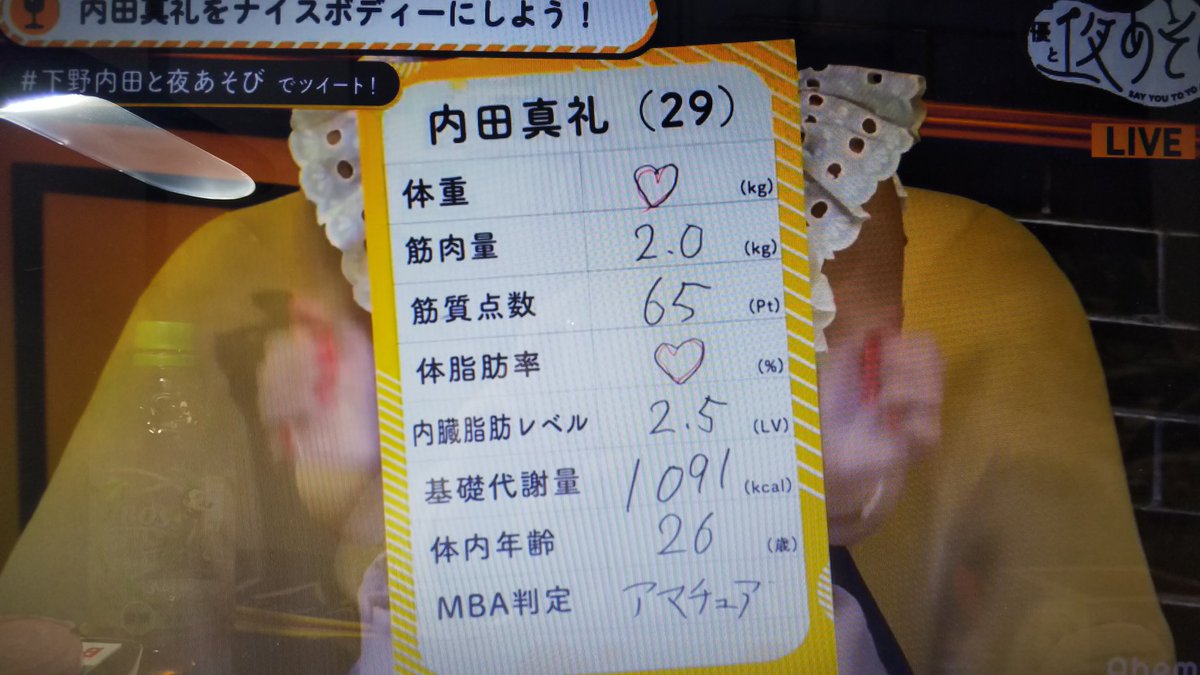 内田真礼をナイスボディーにしよう！
#下野内田と夜あそび でツイート！
と夜あそ
SAY YOU TO YO
LIVE
内田真礼（29）
体重 ♡ (kg)
筋肉量 2.0 (kg)
筋質点数 65 (Pt)
体脂肪率 ♡ (%)
内臓脂肪レベル 2.5 (LV)
基礎代謝量 1091 (kcal)
体内年齢 26 (歳)
MBA判定 アマチュア